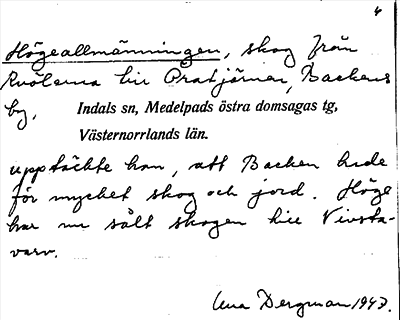 Högeallmänningen, skog från
Kvölerna till Oratjärnen, Backens
by,
Indals sn, Medelpads östra domsagas tg,
Västernorrlands län.
upptäckte han, att Backen hade
för mycket skog och jord. Höge
har nu sålt skogen till Vivsta-
varv.
Bergman 1943.